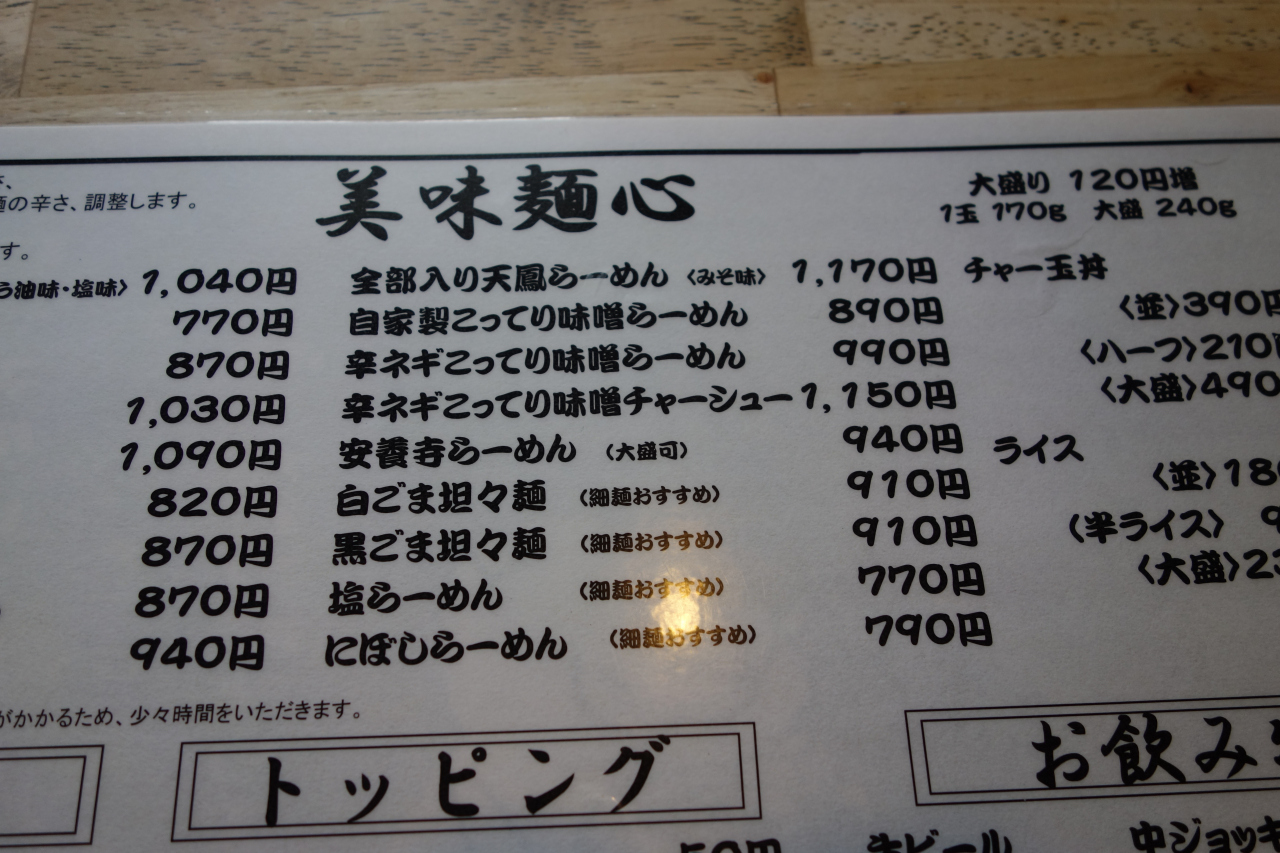 麺の辛さ、調整します。
す。
美味麺心
大盛り 120円増
1玉 170g 大盛 240g
う油味・塩味〉 1,040円
770円
870円
1,030円
1,090円
820円
870円
870円
940円
全部入り天鳳らーめん 〈みそ味〉 1,170円
自家製こってり味噌らーめん 890円
辛ネギこってり味噌らーめん 990円
辛ネギこってり味噌チャーシュー 1,150円
安養寺らーめん (大盛可) 940円
白ごま坦々麺 (細麺おすすめ) 910円
黒ごま坦々麺 (細麺おすすめ) 910円
塩らーめん (細麺おすすめ) 770円
にぼしらーめん (細麺おすすめ) 790円
チャー玉丼
〈並〉390円
〈ハーフ〉210円
〈大盛〉490
ライス
〈並〉18
(半ライス)
〈大盛〉23
がかかるため、少々時間をいただきます。
トッピング
お飲み
50円
生ビール
中ジョッキ